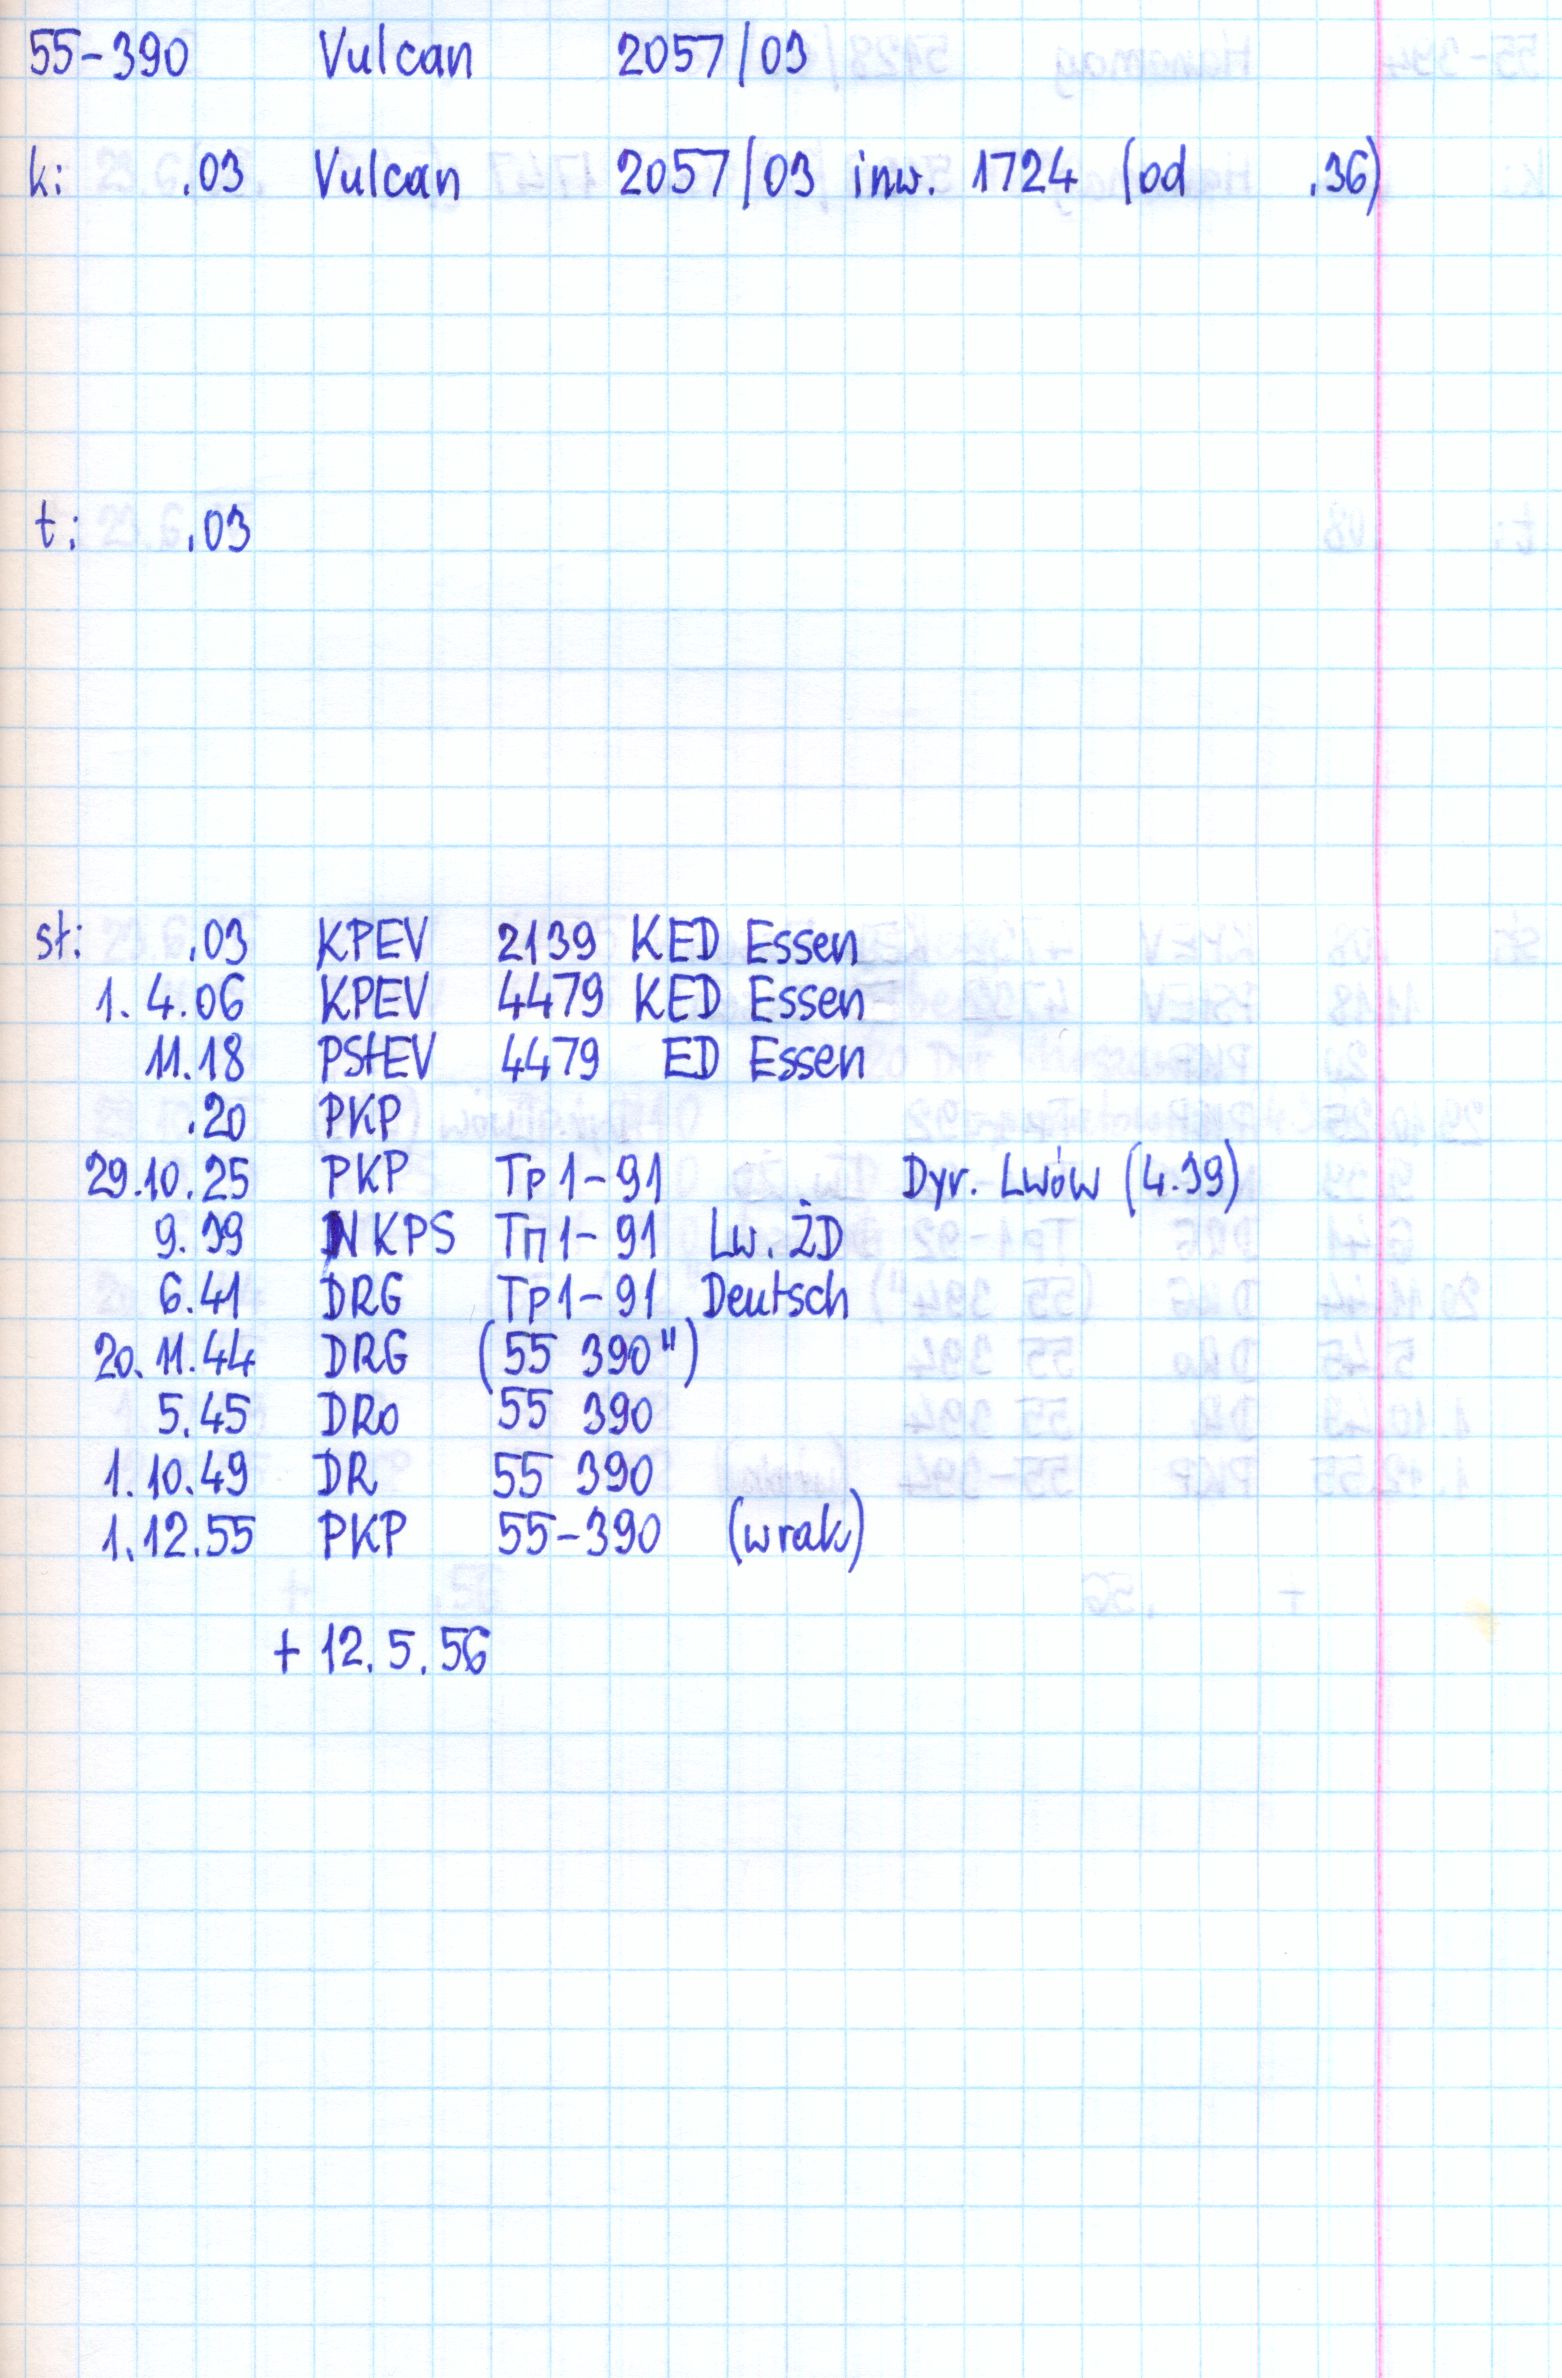 55-390 Vulcan 2057/03
k: .03 Vulcan 2057/03 inw. 1724 (od .36)
t: .03
st: .03 KPEV 2139 KED Essen
1.4.06 KPEV 4479 KED Essen
11.18 PStEV 4479 ED Essen
.20 PKP
29.10.25 PKP Tp1-91 Dyr. Lwów (4.39)
9.39 NKPS Тп1-91 Lw. ŻD
6.41 DRG Tp1-91 Deutsch
20.11.44 DRG (55 390")
5.45 DRo 55 390
1.10.49 DR 55 390
1.12.55 PKP 55-390 (wrak)
+ 12.5.56